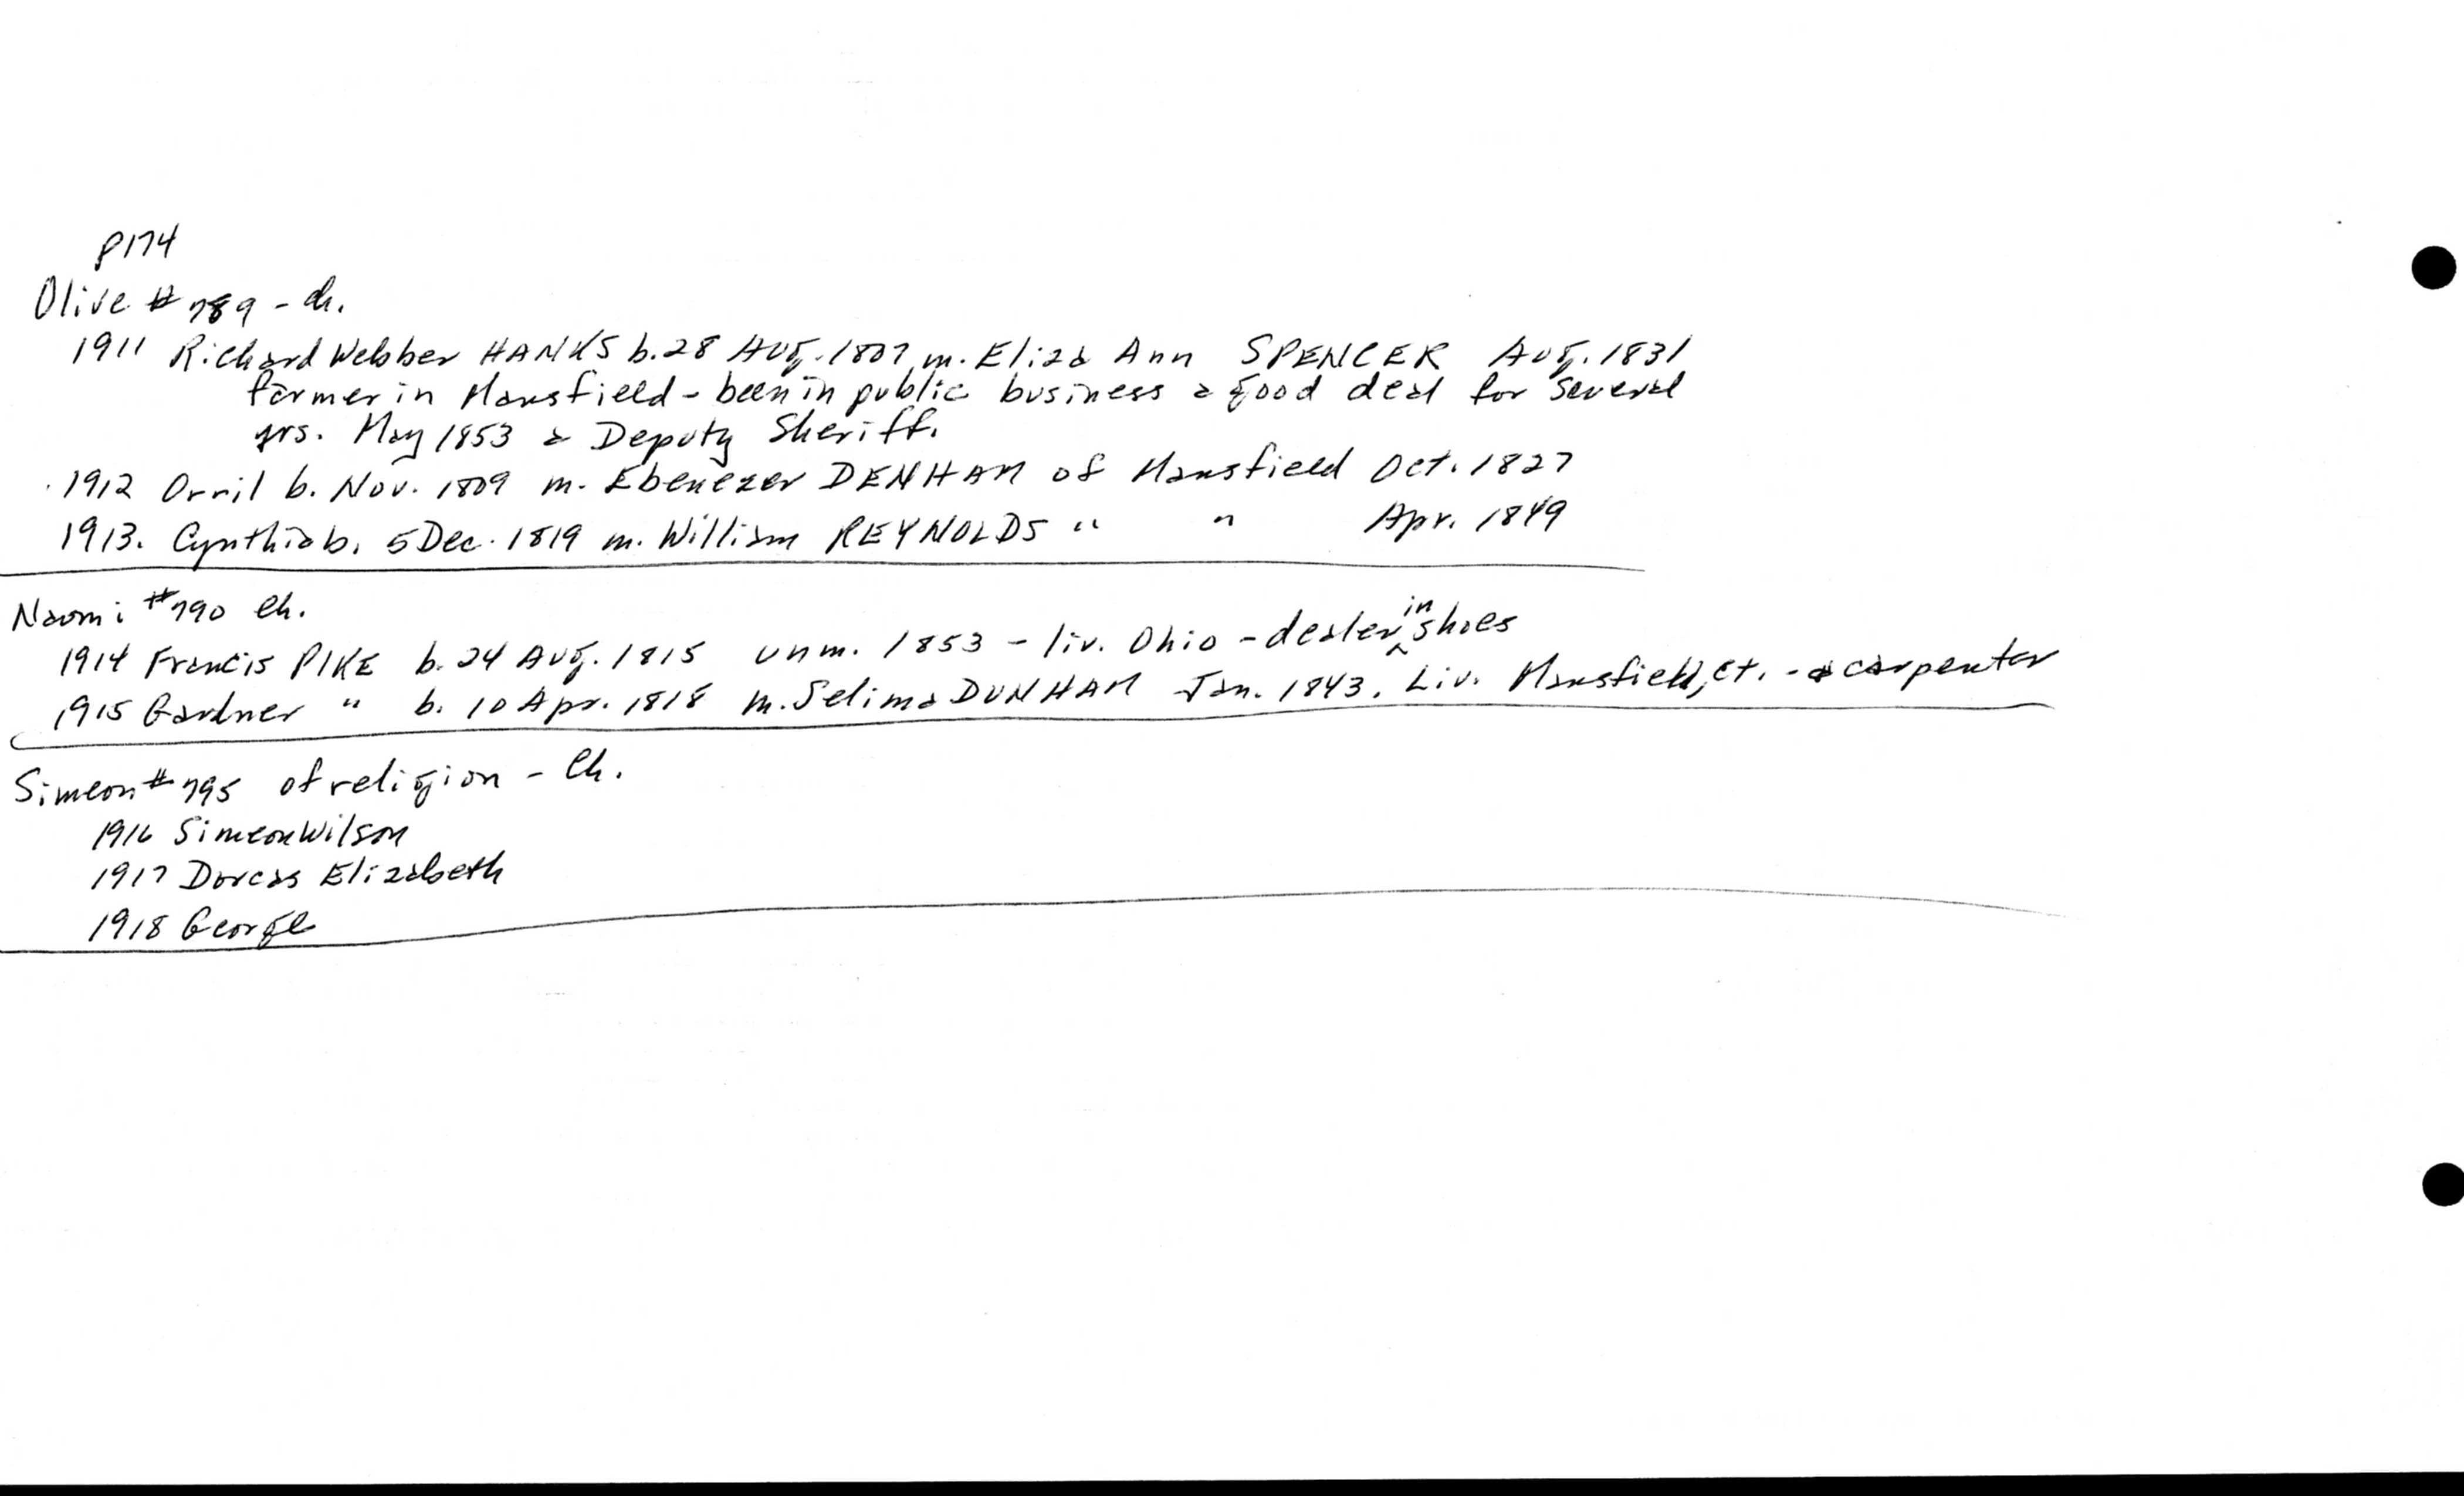 p174
Olive # 789 - ch.
1911 Richard Webber HANKS b. 28 Aug. 1807 m. Eliza Ann SPENCER Aug. 1831
farmer in Mansfield - been in public business a good deal for several
yrs. May 1853 a Deputy Sheriff.
1912 Orril b. Nov. 1809 m. Ebenezer DENHAM of Mansfield Oct. 1827
1913. Cynthia b. 5 Dec. 1819 m. William REYNOLDS " " Apr. 1849
Naomi #790 Ch.
1914 Francis PIKE b. 24 Aug. 1815 unm. 1853 - liv. Ohio - dealer in shoes
1915 Gardner " b. 10 Apr. 1818 m. Selima DUNHAM Jan. 1843. Liv. Mansfield, Ct. - a carpenter
Simeon # 795 of religion - Ch.
1916 Simeon Wilson
1917 Dorcas Elizabeth
1918 George